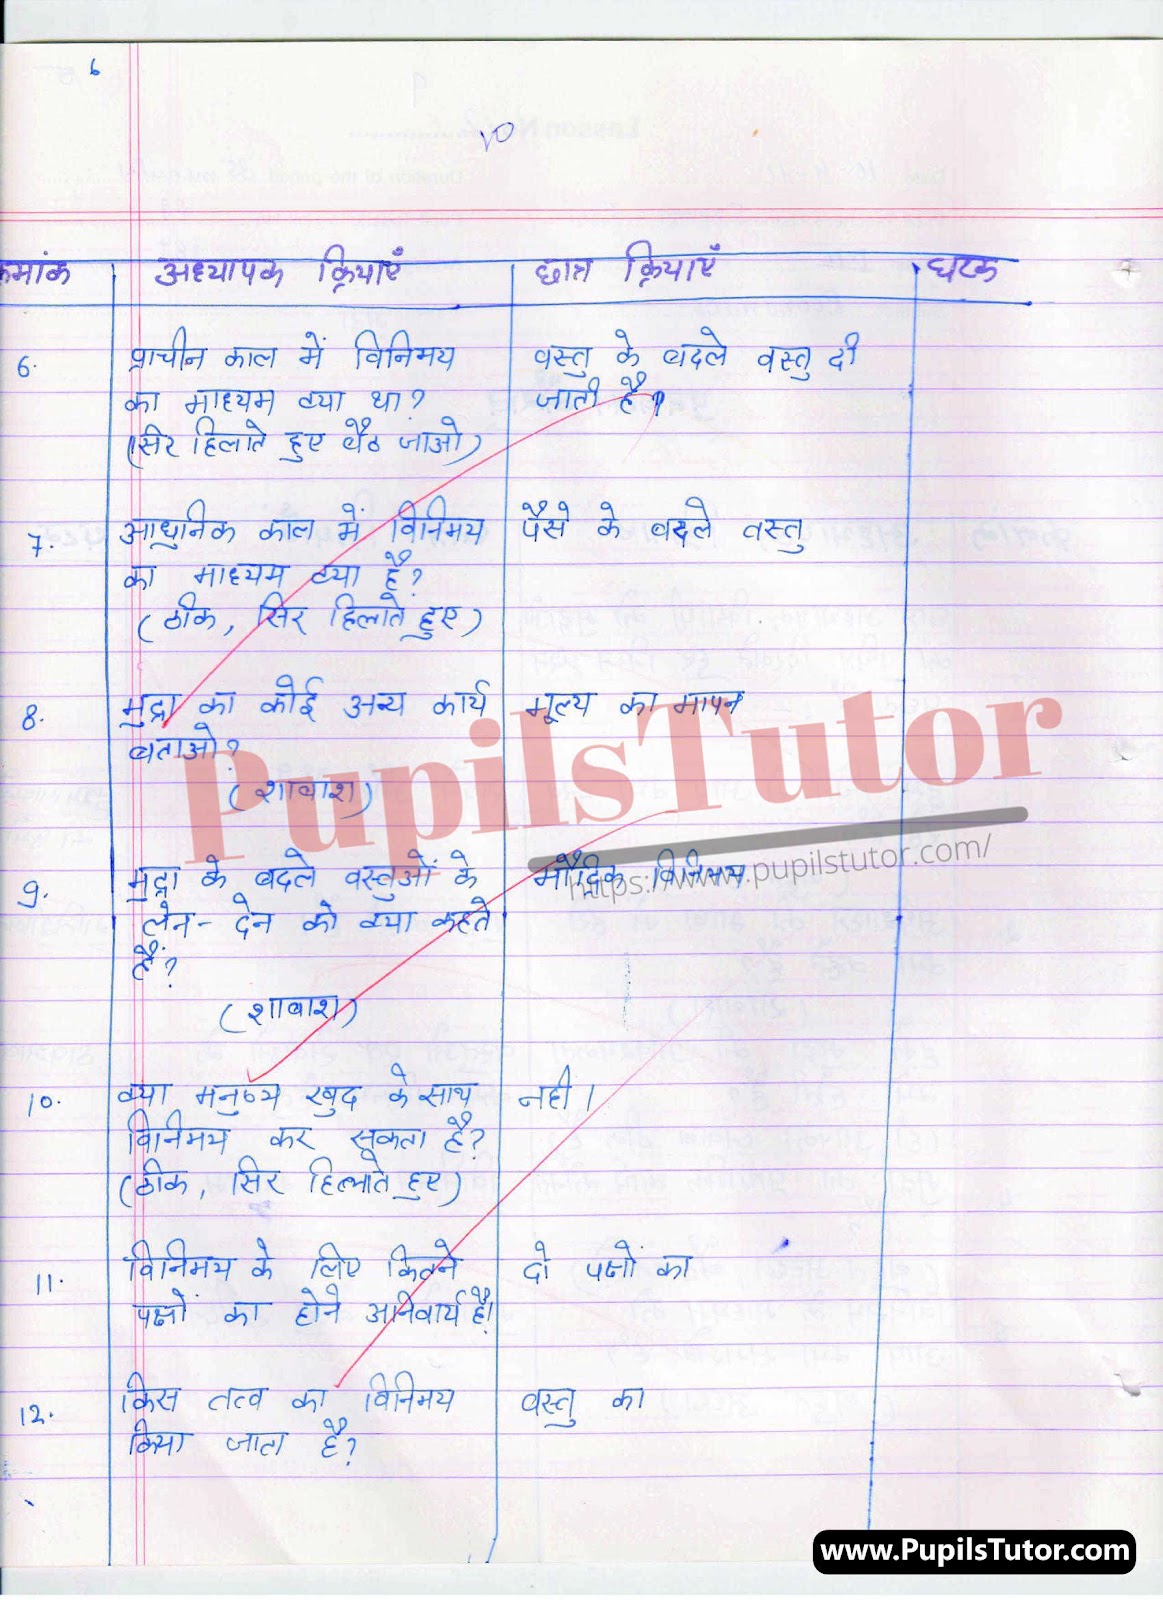 6
10
क्रमांक अध्यापक क्रियाएँ छात्र क्रियाएँ घटक
6. प्राचीन काल में विनिमय वस्तु के बदले वस्तु दी
का माध्यम क्या था? जाती है।
(सिर हिलाते हुए बैठ जाओ)
7. आधुनिक काल में विनिमय पैसे के बदले वस्तु
का माध्यम क्या है?
(ठीक, सिर हिलाते हुए)
8. मुद्रा का कोई अन्य कार्य मूल्य का मापन
बताओ?
(शाबाश)
PupilsTutor
https://www.pupilstutor.com/
9. मुद्रा के बदले वस्तुओं के मौद्रिक विनिमय
लेन-देन को क्या कहते
हैं?
(शाबाश)
10. क्या मनुष्य खुद के साथ नही।
विनिमय कर सकता है?
(ठीक, सिर हिलाते हुए)
11. विनिमय के लिए कितने दो पक्षों का
पक्षों का होने अनिवार्य है।
12. किस तत्व का विनिमय वस्तु का
किया जाता है?
www.PupilsTutor.com